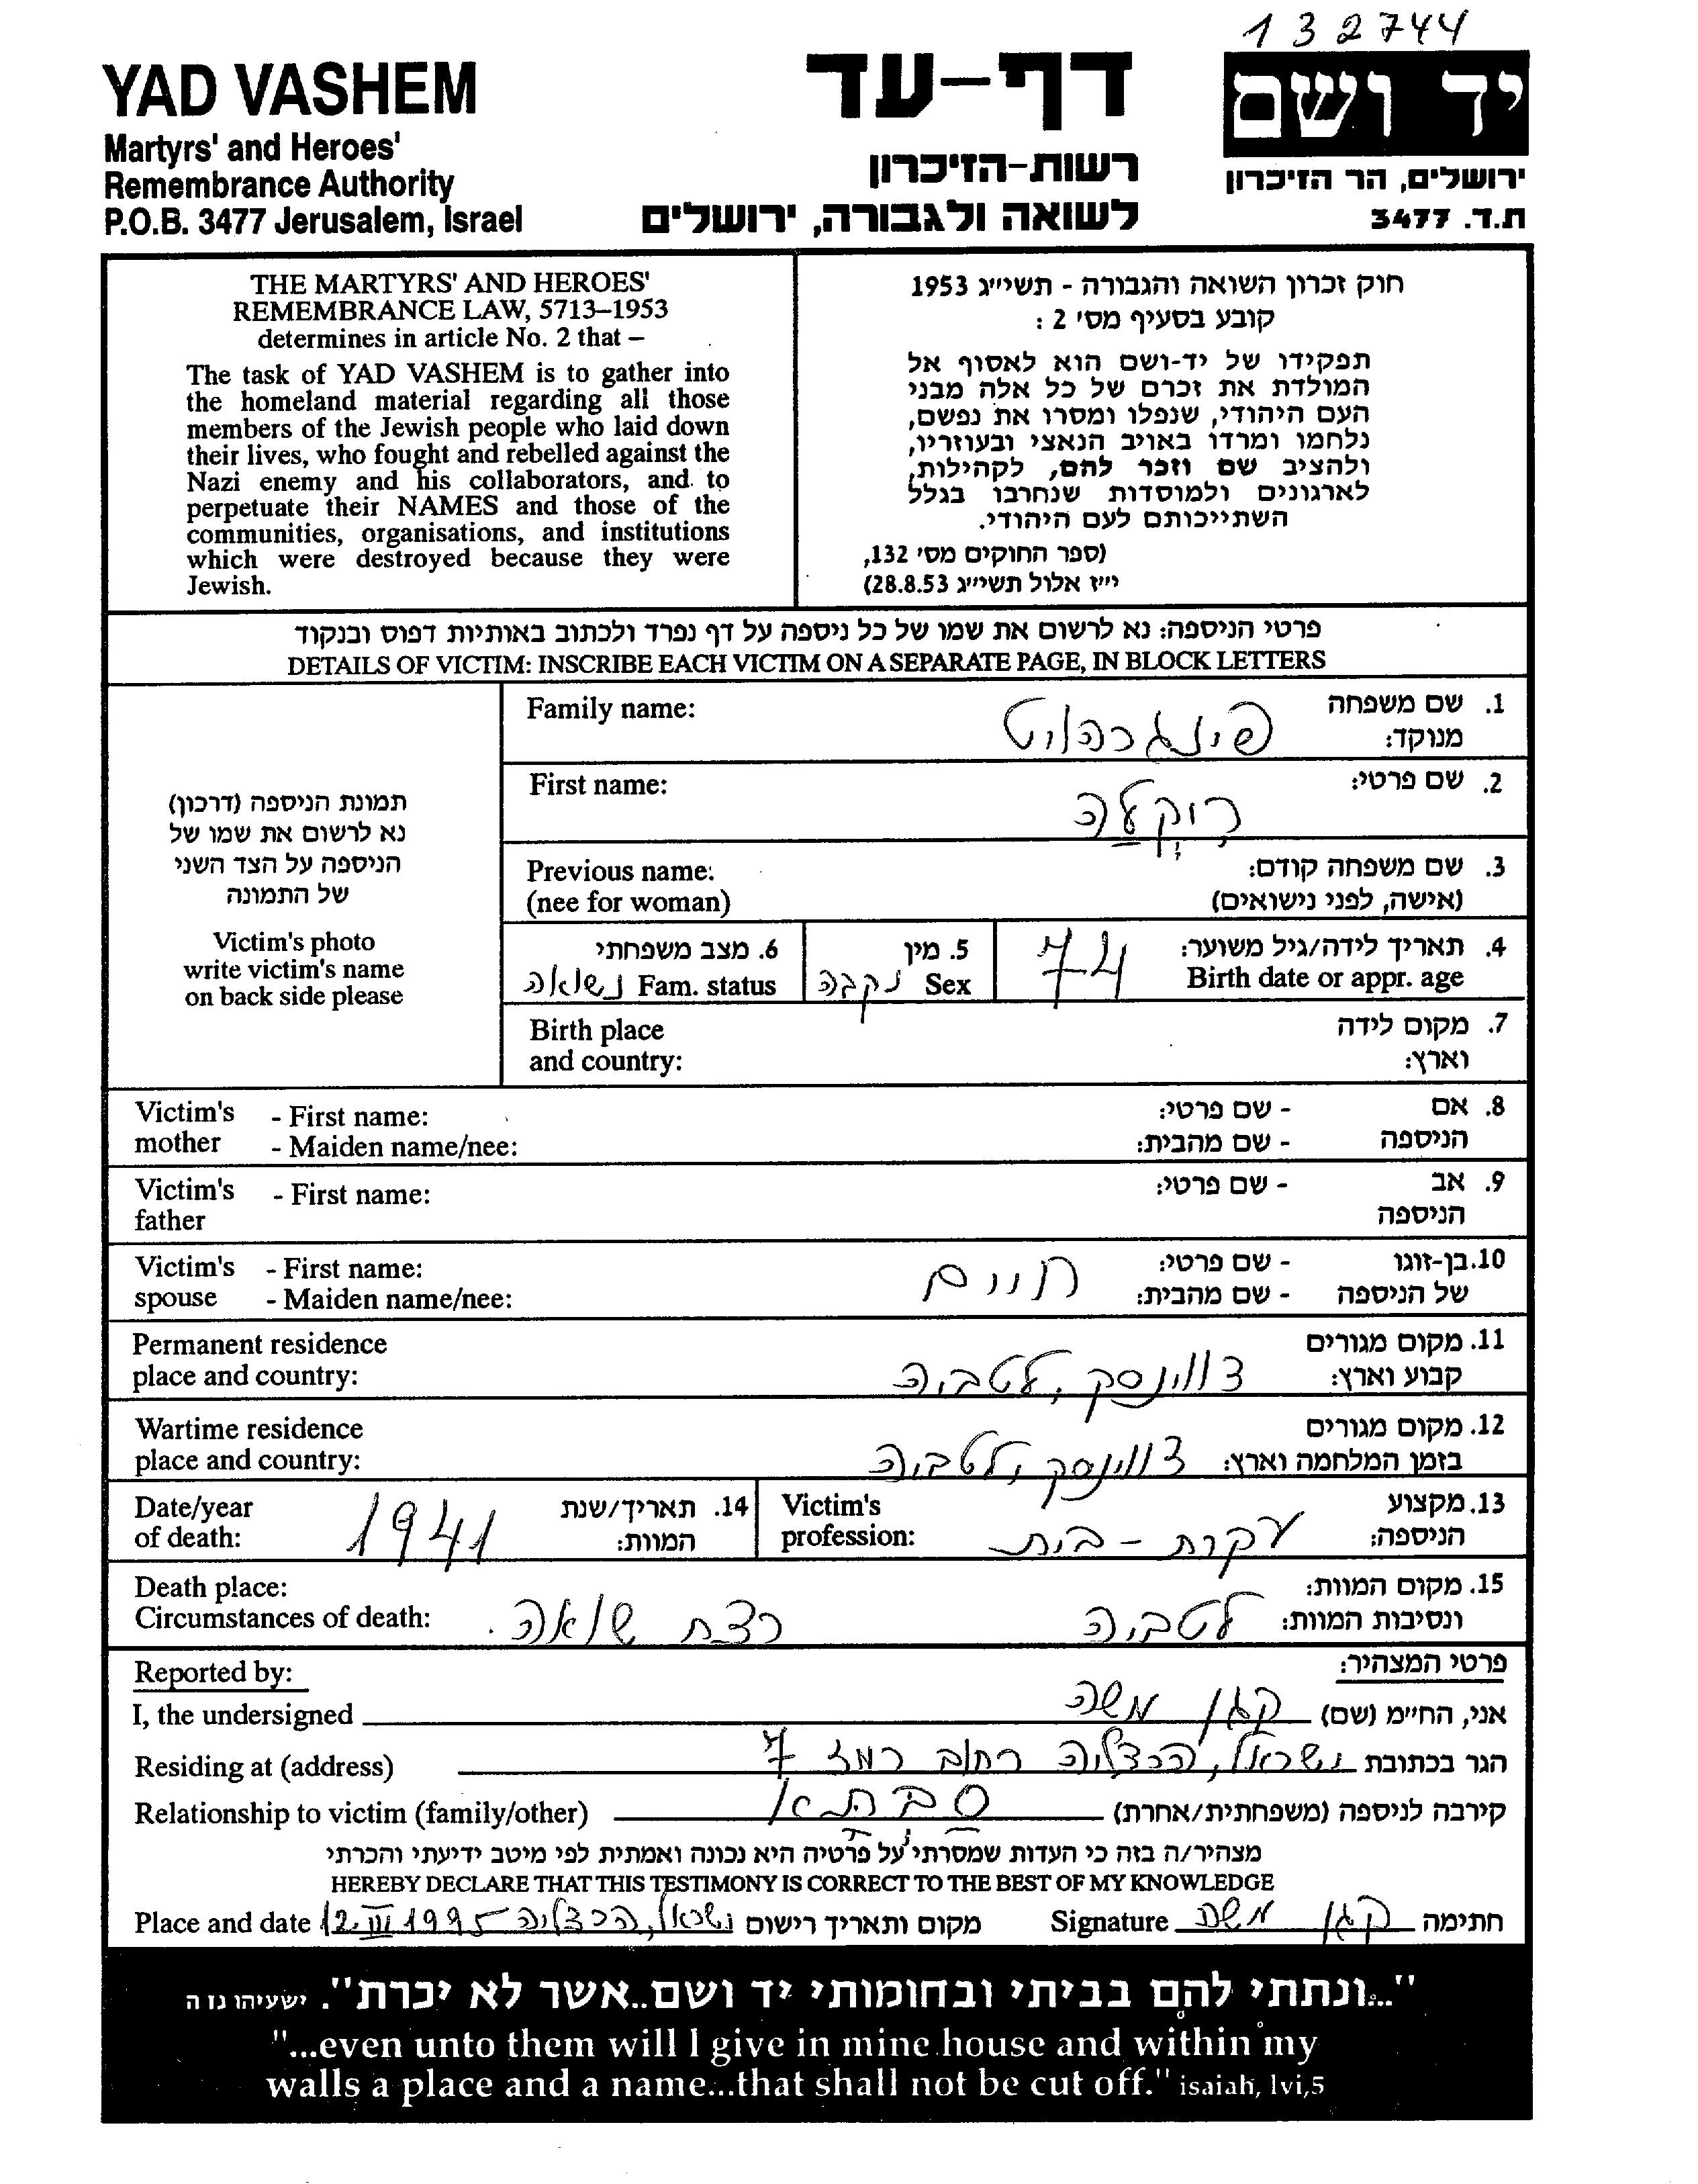 132744
YAD VASHEM
Martyrs' and Heroes'
Remembrance Authority
P.O.B. 3477 Jerusalem, Israel
דף-עד
רשות-הזיכרון
לשואה ולגבורה, ירושלים
יד ושם
ירושלים, הר הזיכרון
ת.ד. 3477
THE MARTYRS' AND HEROES'
REMEMBRANCE LAW, 5713–1953
determines in article No. 2 that –
The task of YAD VASHEM is to gather into
the homeland material regarding all those
members of the Jewish people who laid down
their lives, who fought and rebelled against the
Nazi enemy and his collaborators, and to
perpetuate their NAMES and those of the
communities, organisations, and institutions
which were destroyed because they were
Jewish.
חוק זכרון השואה והגבורה - תשי״ג 1953
קובע בסעיף מס' 2 :
תפקידו של יד-ושם הוא לאסוף אל
המולדת את זכרם של כל אלה מבני
העם היהודי, שנפלו ומסרו את נפשם,
נלחמו ומרדו באויב הנאצי ובעוזריו,
ולהציב שם וזכר להם, לקהילות,
לארגונים ולמוסדות שנחרבו בגלל
השתייכותם לעם היהודי.
(ספר החוקים מס' 132,
י״ז אלול תשי״ג 28.8.53)
פרטי הניספה: נא לרשום את שמו של כל ניספה על דף נפרד ולכתוב באותיות דפוס ובנקוד
DETAILS OF VICTIM: INSCRIBE EACH VICTIM ON A SEPARATE PAGE, IN BLOCK LETTERS
תמונת הניספה (דרכון)
נא לרשום את שמו של
הניספה על הצד השני
של התמונה
Victim's photo
write victim's name
on back side please
Family name: פינגרהויט 1. שם משפחה
מנוקד:
First name: רוקלה 2. שם פרטי:
Previous name: 3. שם משפחה קודם:
(nee for woman) (אישה, לפני נישואים)
4. תאריך לידה/גיל משוער: 74 5. מין 6. מצב משפחתי
Birth date or appr. age Sex נקבה Fam. status נשואה
Birth place 7. מקום לידה
and country: וארץ:
Victim's - First name: - שם פרטי: 8. אם
mother - Maiden name/nee: - שם מהבית: הניספה
Victim's - First name: - שם פרטי: 9. אב
father הניספה
Victim's - First name: חיים - שם פרטי: 10. בן-זוגו
spouse - Maiden name/nee: - שם מהבית: של הניספה
Permanent residence 11. מקום מגורים
place and country: דווינסק, לטביה קבוע וארץ:
Wartime residence 12. מקום מגורים
place and country: דווינסק, לטביה בזמן המלחמה וארץ:
Date/year 14. תאריך/שנת Victim's 13. מקצוע
of death: 1941 המוות: profession: עקרת - בית הניספה:
Death place: 15. מקום המוות:
Circumstances of death: לטביה רצח שואה. ונסיבות המוות:
Reported by: פרטי המצהיר:
I, the undersigned קגן משה אני, החי״מ (שם)
Residing at (address) ישראל, הרצליה רחוב רמז 7 הגר בכתובת
Relationship to victim (family/other) סבתא קירבה לניספה (משפחתית/אחרת)
מצהיר/ה בזה כי העדות שמסרתי על פרטיה היא נכונה ואמתית לפי מיטב ידיעתי והכרתי
HEREBY DECLARE THAT THIS TESTIMONY IS CORRECT TO THE BEST OF MY KNOWLEDGE
Place and date 12.III 1995 ישראל, הרצליה מקום ותאריך רישום Signature קגן משה חתימה
"...ונתתי להם בביתי ובחומותי יד ושם..אשר לא יכרת". ישעיהו נו ה
"...even unto them will I give in mine house and within my
walls a place and a name...that shall not be cut off." isaiah, lvi,5